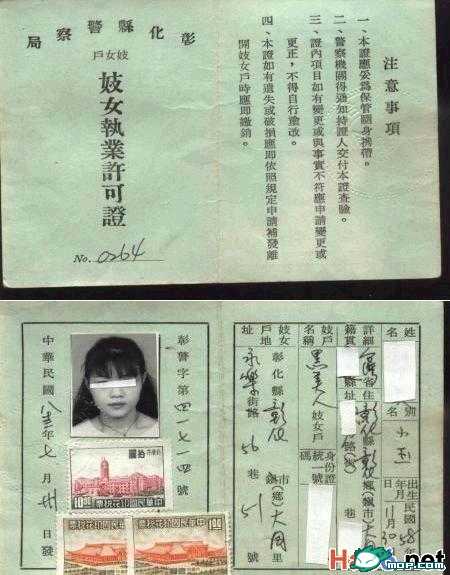 注意事項
一、本證應妥為保管隨身携帶。
二、警察機關得通知持證人交付本證查驗。
三、證內項目如有變更或與事實不符應申請變更或
更正，不得自行塗改。
四、本證如有遺失或破損應即依照規定申請補發離
開妓女戶時應即繳銷。
彰化縣警察局
妓女戶
妓女執業許可證
No. 0264
姓名
別名
小玉
出生年月日
民國58年11月30日
詳細籍貫
省
縣
妓女戶名稱
黑美人
妓女戶
身份證統一號碼
妓女戶地址
彰化縣彰化市鎮(鄉)大同里
永樂街路56巷51號
彰警字第四一七一四號
中華民國八三年七月卅日發
拾圓
中華民國印花稅票
10圓
中華民國印花稅票
圓1
mop.com
.net
mop.com